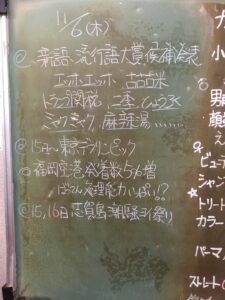 11/6(木)
@新語・流行語大賞候補発表
エッホエッホ 古古古米
トランプ関税 二季、ひょうろく
ミャクミャク 麻辣湯……
@15日〜東京デフリンピック
◎福岡空港発着数5%増
ばってん処理能力いっぱい!?
@15,16日志賀島潮騒ヨイ祭り
カ
小
男
顔
ビュー
シャン
トリート
カラー
パーマ
ストレート(